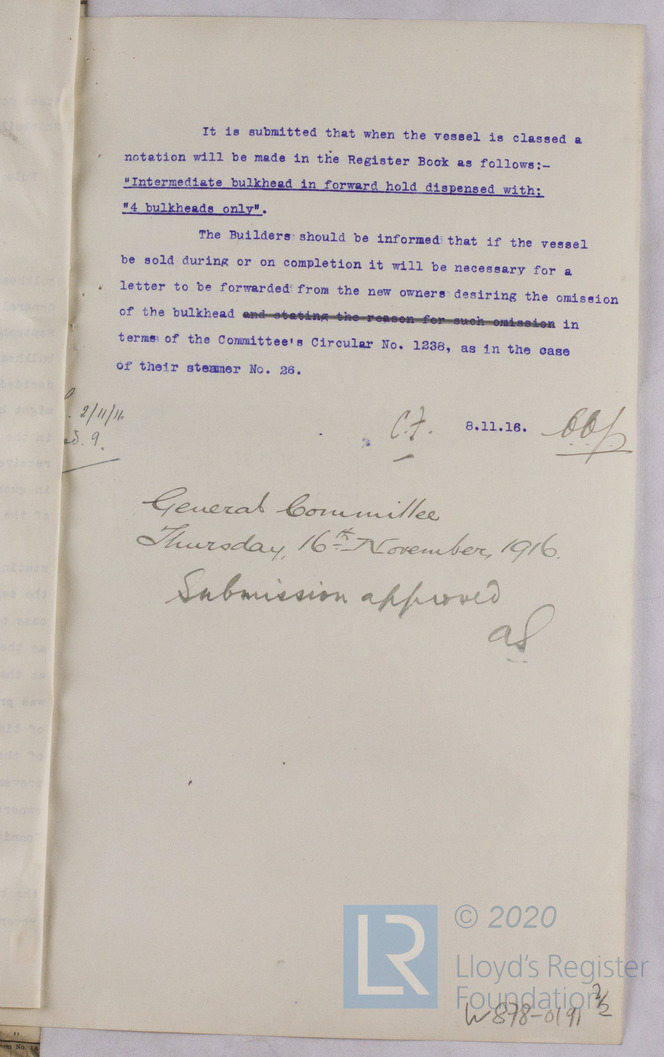 It is submitted that when the vessel is classed a
notation will be made in the Register Book as follows:-
"Intermediate bulkhead in forward hold dispensed with;
"4 bulkheads only".
The Builders should be informed that if the vessel
be sold during or on completion it will be necessary for a
letter to be forwarded from the new owners desiring the omission
of the bulkhead and stating the reason for such omission in
terms of the Committee's Circular No. 1238, as in the case
of their steamer No. 26.
2/11/16
9.
C.F. 8.11.16.
General Committee
Thursday, 16th November, 1916.
Submission approved
© 2020
LR
Lloyd's Register
Foundation
W878-0191 2/2